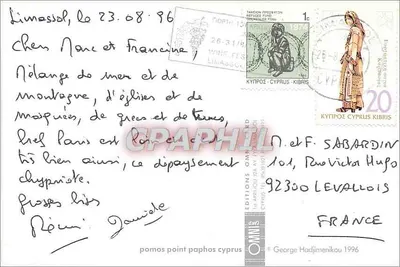 Limassol, le 23.08.96
Chers Marc et Francine,
Mélange de mer et de
montagne, d'églises et de
mosquées, de grecs et de turcs,
bref Paris est loin et c'est
très bien ainsi, ce dépaysement
chypriote.
grosses bises
Rémi
M. et F. SABARDIN
101, Rue Victor Hugo
92300 LEVALLOIS
FRANCE
1c
ΚΥΠΡΟΣ CYPRUS KIBRIS
20
ΚΥΠΡΟΣ CYPRUS KIBRIS
CRAPHIL
EDITIONS OMNI
OMNI
pomos point paphos cyprus
© George Hadjimenikou 1996